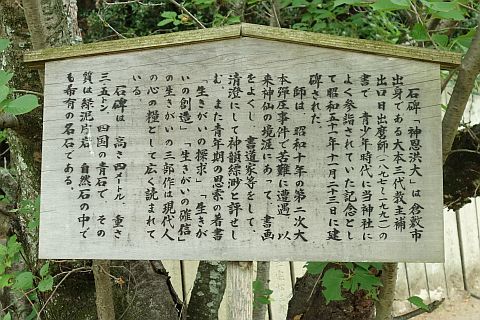 石碑「神恩洪大」は倉敷市
出身である大本三代教主補
出口日出麿師(一八九七-一九九一)の
書で青少年時代に当神社に
よく参詣されていた記念とし
て昭和五十八年十一月二十三日に建
碑された。
師は、昭和十年の第二次大
本弾圧事件で苦難に遭遇、以
来神仙の境涯にあって、書画
をよくし、書道家等をして、
清澄にして神韻縹渺と評せし
む。また青年期の思索の著書
「生きがいの探求」「生きが
いの創造」「生きがいの確信」
の生きがいの三部作は現代人
の心の糧として広く読まれて
いる。
石碑は、高さ四メートル、重さ
三五トン、四国の青石で、その
質は緑泥片岩、自然石の中で
も希有の名石である。